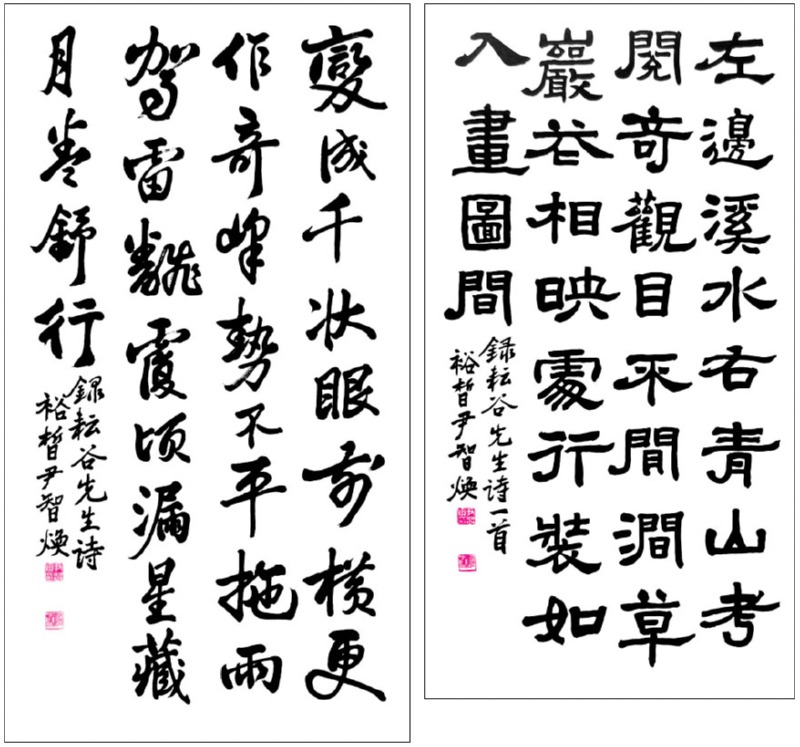 左邊溪水右青山考
閱奇觀目不閒澗草
巖花相映處行裝如
入畫圖間
錄耘谷先生詩一首
裕晳尹智煥
變成千狀眼前橫更
作奇峰勢不平拖雨
駕雷飜覆頃漏星藏
月卷舒行
錄耘谷先生詩
裕晳尹智煥